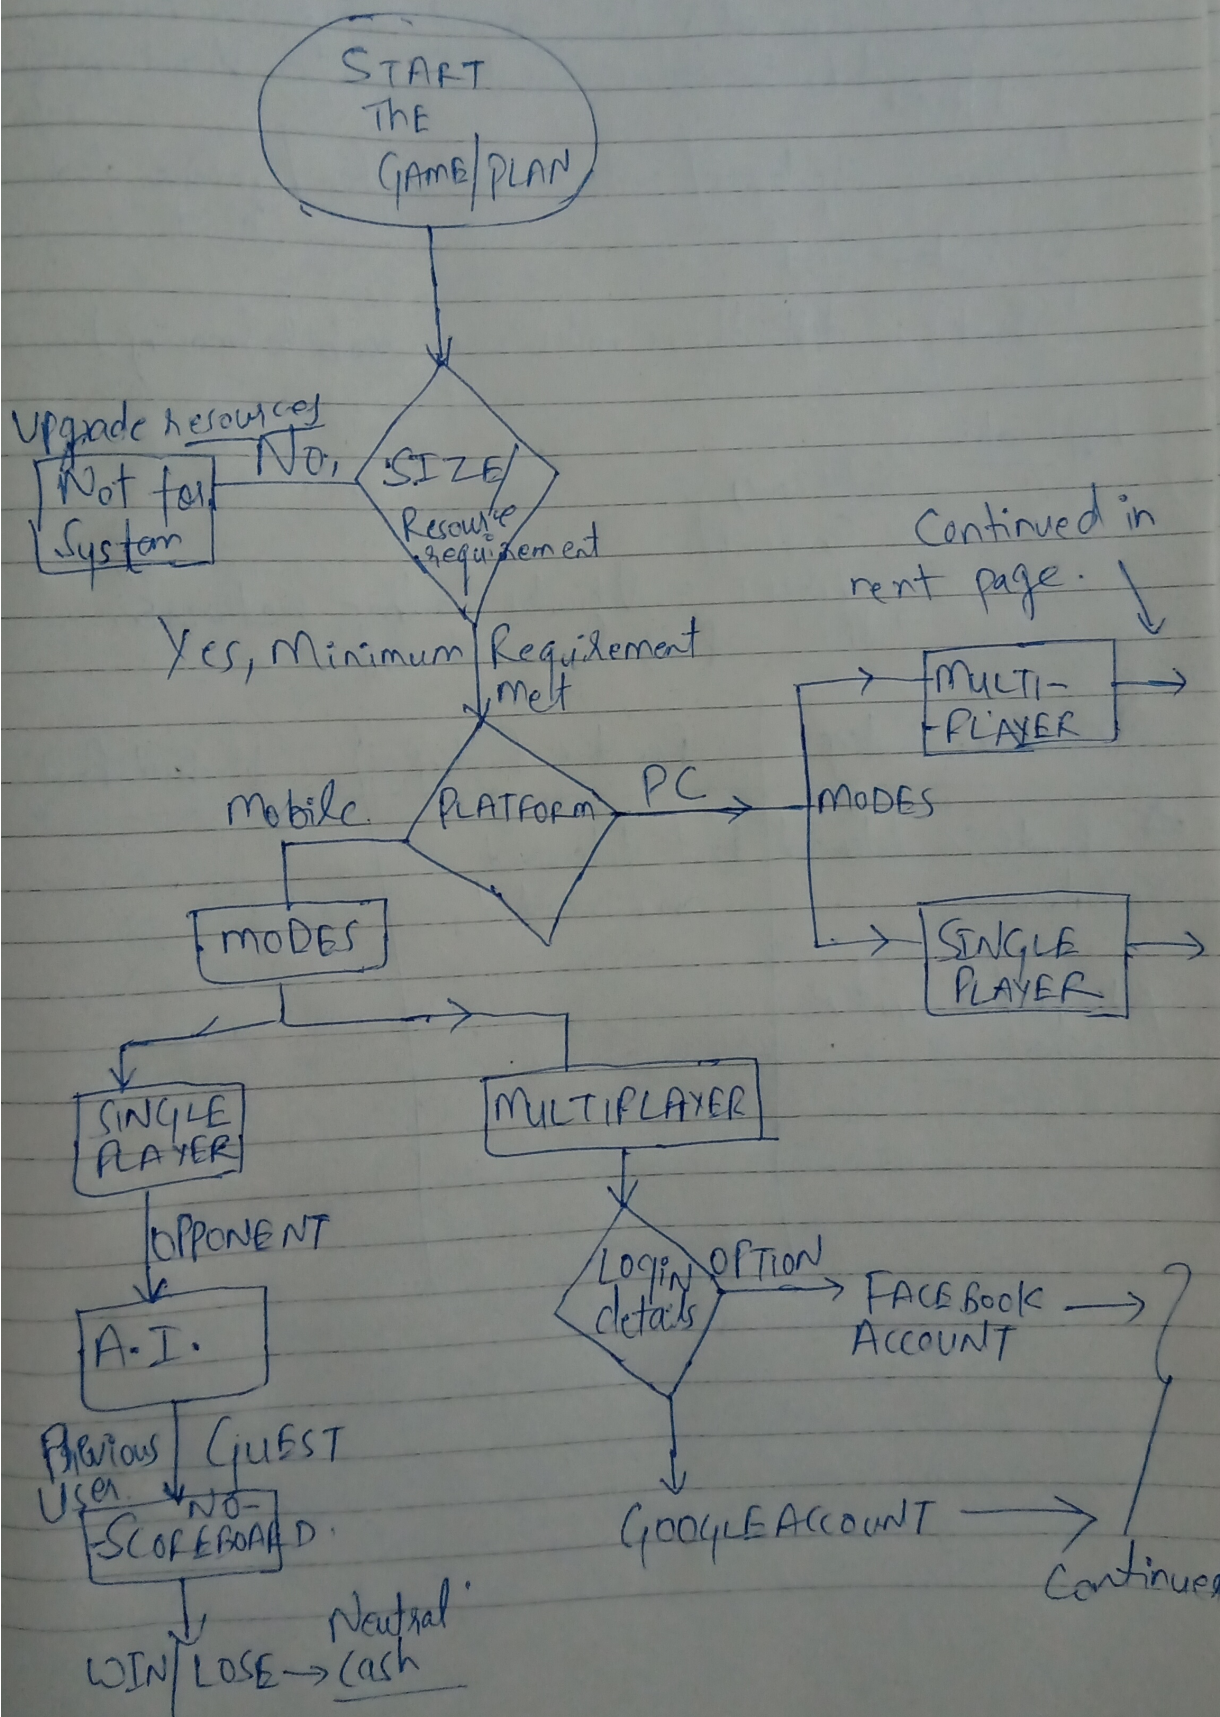 START
ThE
GAME/PLAN
Upgrade resources
No,
Not for
System
SIZE/
Resource
requirement
Continued in
nent page.
Yes, Minimum Requirement
met
MULTI-
PLAYER
Mobile.
PLATFORM
PC
MODES
MODES
SINGLE
PLAYER
SINGLE
PLAYER
MULTIPLAYER
OPPONENT
LOGIN
details
OPTION
FACEBOOK
ACCOUNT
A.I.
Previous
User.
GUEST
NO-
SCOREBOARD.
GOOGLE ACCOUNT
Continued
WIN/LOSE → Neutral
Cash